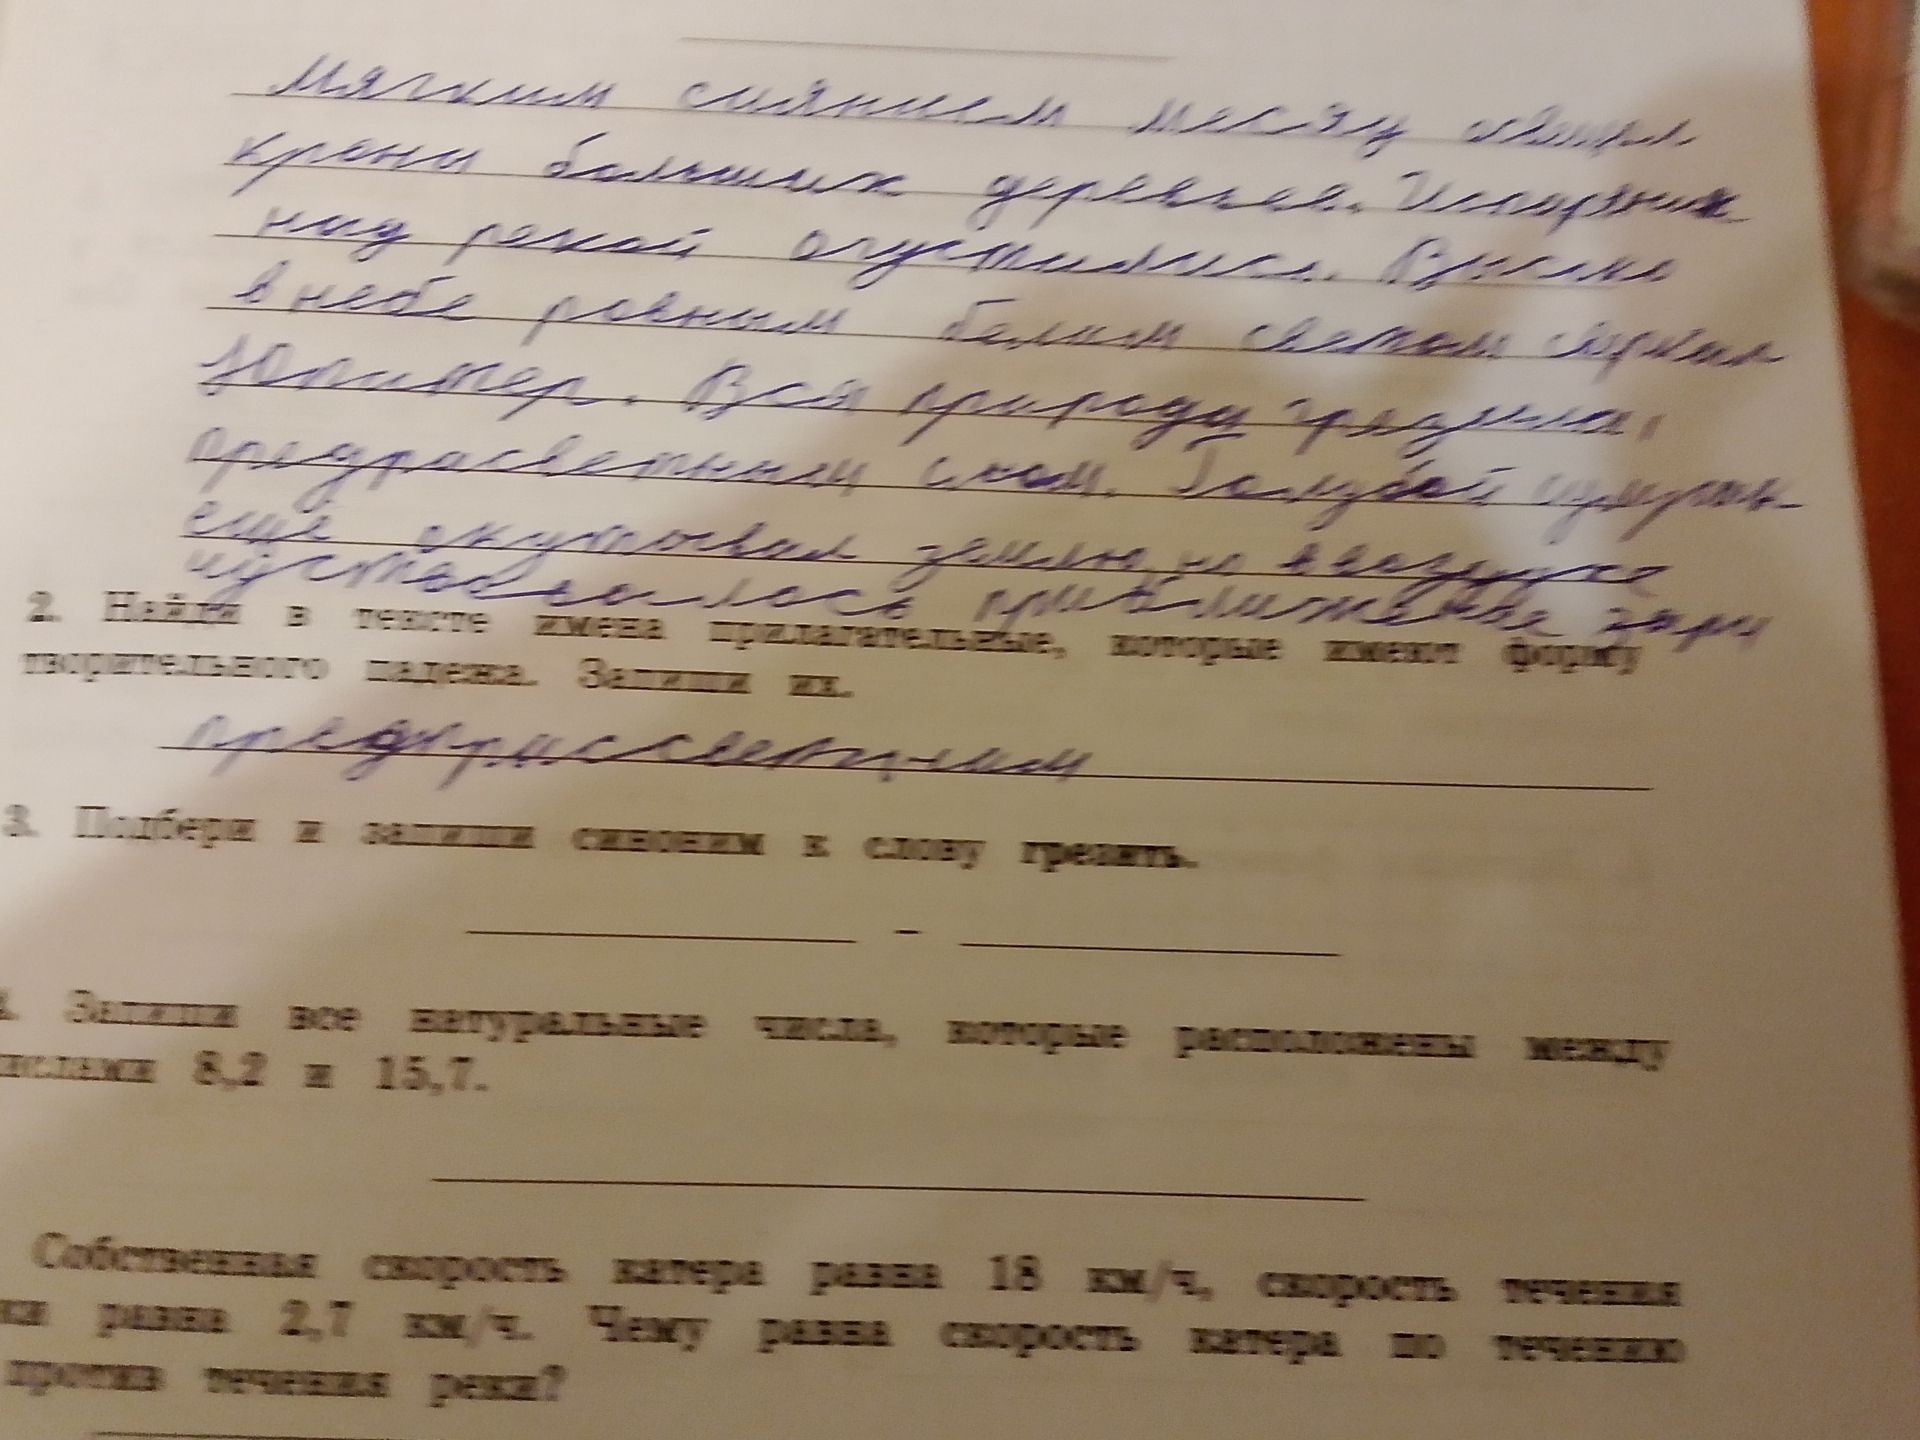 Мягким сиянием месяц освещал
кроны больших деревьев. Испарения
над рекой сгустились. Высоко
в небе ровным белым светом сверкал
Юпитер. Вся природа грезила
предрасветным сном. Голубой сумрак
ещё окутывал землю, но в воздухе
чуствовалось приближение зари
2. Найди в тексте имена прилагательные, которые имеют форму
творительного падежа. Запиши их.
предрассветным
3. Подбери и запиши синоним к слову грезить.
–
4. Запиши все натуральные числа, которые расположены между
числами 8,2 и 15,7.
Собственная скорость катера равна 18 км/ч, скорость течения
ки равна 2,7 км/ч. Чему равна скорость катера по течению
против течения реки?